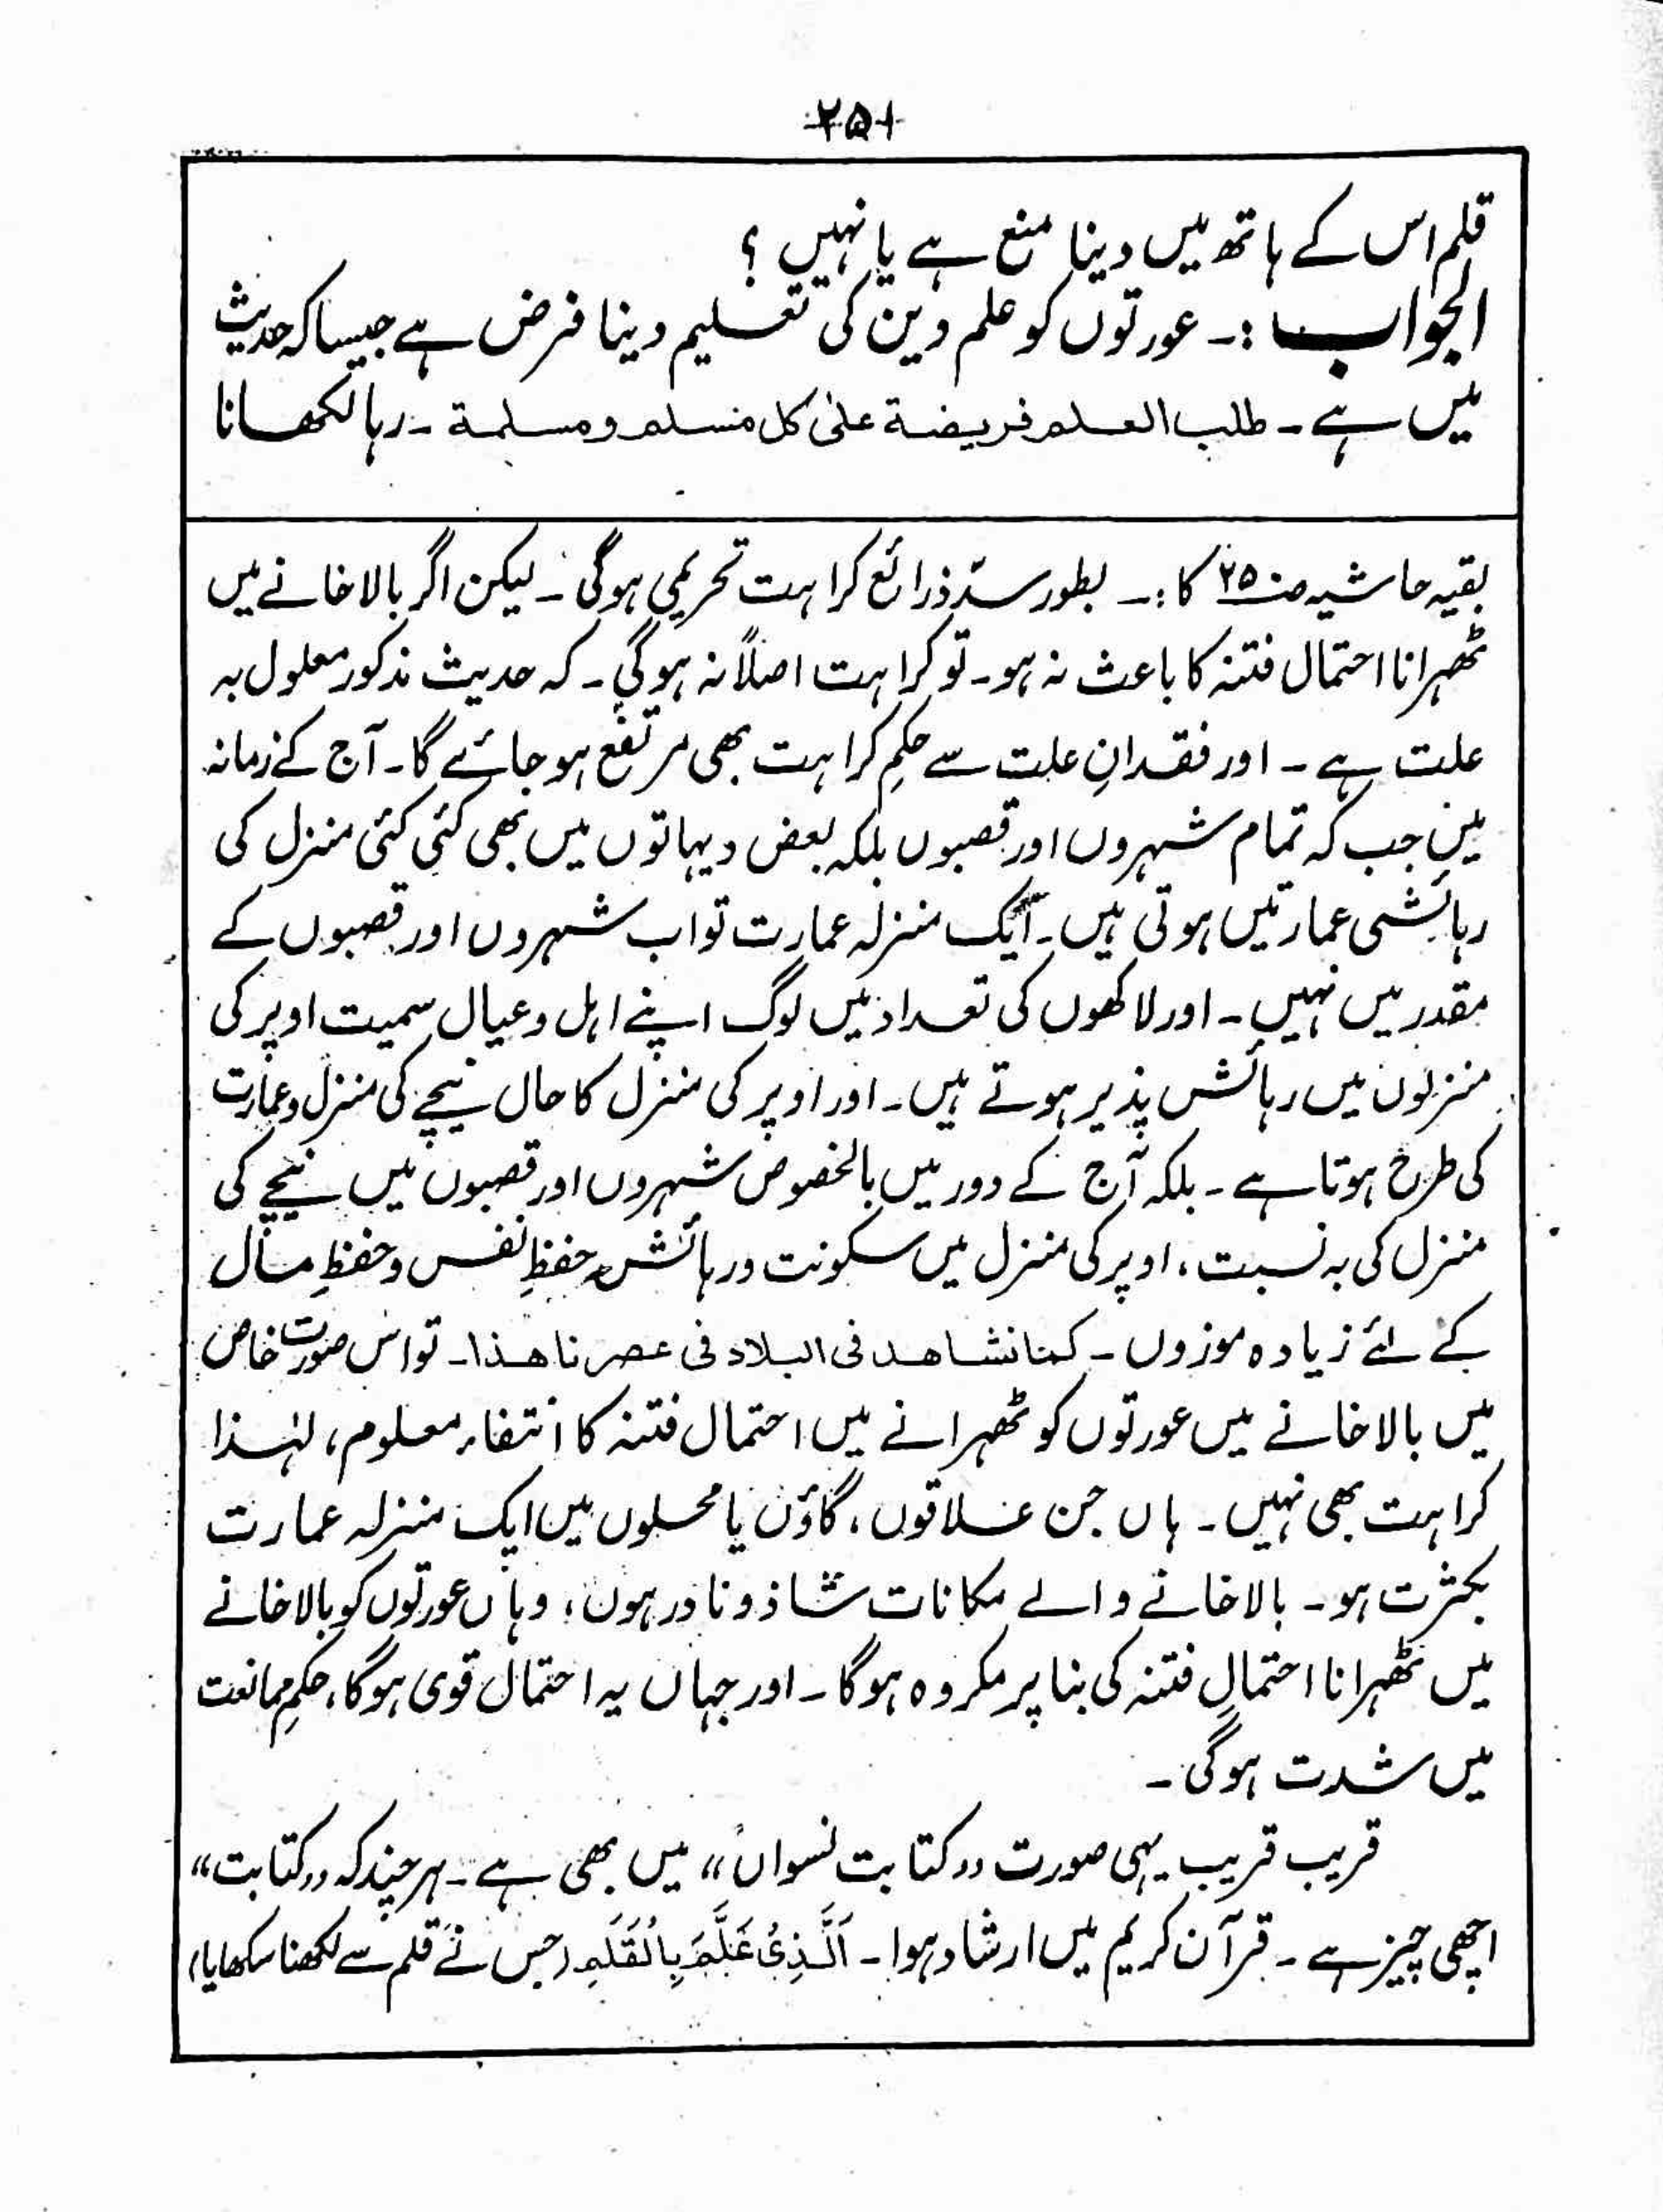 ۲۵۱
قلم اس کے ہاتھ میں دینا منع ہے یا نہیں ؟
الجواب :۔ عورتوں کو علم دین کی تعلیم دینا فرض ہے جیسا کہ حدیث
میں ہے ۔ طلب العلم فریضة علیٰ کل مسلم ومسلمة ۔ رہا لکھانا
بقیہ حاشیہ صـ۲۵ کا :۔ بطور سدّ ذرائع کراہت تحریمی ہوگی ۔ لیکن اگر بالاخانے میں
ٹھہرانا احتمال فتنہ کا باعث نہ ہو۔ تو کراہت اصلاً نہ ہوگی ۔ کہ حدیث مذکور معلول بہ
علت ہے ۔ اور فقدانِ علت سے حکمِ کراہت بھی مرتفع ہو جائے گا۔ آج کے زمانہ
میں جب کہ تمام شہروں اور قصبوں بلکہ بعض دیہاتوں میں بھی کئی کئی منزل کی
رہائشی عمارتیں ہوتی ہیں ۔ ایک منزلہ عمارت تو اب شہروں اور قصبوں کے
مقدر میں نہیں ۔ اور لاکھوں کی تعداد میں لوگ اپنے اہل و عیال سمیت اوپر کی
منزلوں میں رہائش پذیر ہوتے ہیں ۔ اور اوپر کی منزل کا حال نیچے کی منزل و عمارت
کی طرح ہوتا ہے ۔ بلکہ آج کے دور میں بالخصوص شہروں اور قصبوں میں نیچے کی
منزل کی بہ نسبت ، اوپر کی منزل میں سکونت و رہائش حفظِ نفس و حفظِ مال
کے لئے زیادہ موزوں ۔ کما نشاھد فی البلاد فی عصرنا ھذا ۔ تو اس صورت خاص
میں بالاخانے میں عورتوں کو ٹھہرانے میں احتمال فتنہ کا انتفاء معلوم ، لہٰذا
کراہت بھی نہیں ۔ ہاں جن علاقوں ، گاؤں یا محلوں میں ایک منزلہ عمارت
بکثرت ہو ۔ بالاخانے والے مکانات شاذ و نادر ہوں ، وہاں عورتوں کو بالاخانے
میں ٹھہرانا احتمالِ فتنہ کی بنا پر مکروہ ہوگا ۔ اور جہاں یہ احتمال قوی ہوگا ، حکمِ ممانعت
میں شدت ہوگی ۔
قریب قریب یہی صورت ’’ کتابت نسواں ‘‘ میں بھی ہے ۔ ہر چند کہ ’’ کتابت ‘‘
اچھی چیز ہے ۔ قرآن کریم میں ارشاد ہوا ۔ اَلَّذِیْ عَلَّمَ بِالْقَلَمِ (جس نے قلم سے لکھنا سکھایا)